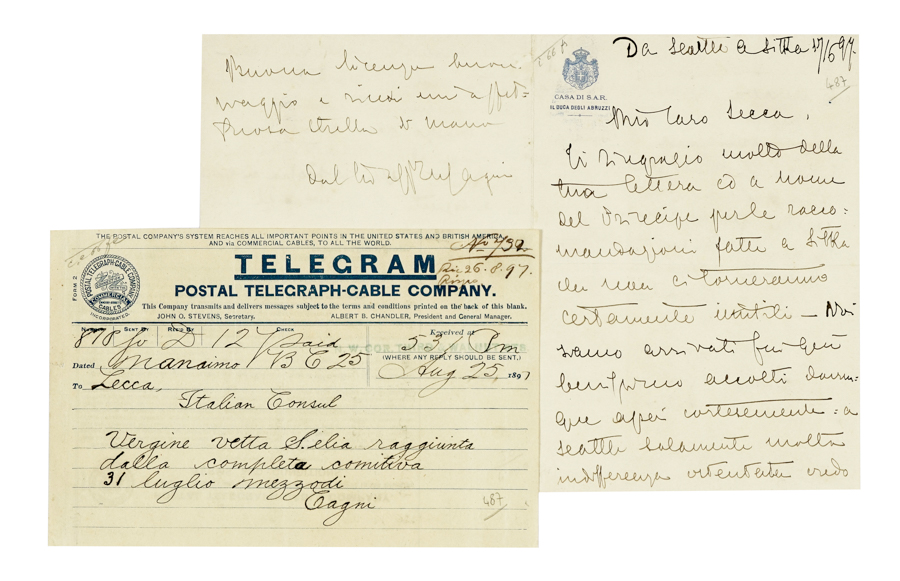 Buona licenza buon
viaggio e ricevi un'affet=
tuosa stretta di mano
Dal tuo aff Cagni
CASA DI S.A.R.
IL DUCA DEGLI ABRUZZI
Da Seattle a Sitka 17/6 97.
487
Mio Caro Lecca,
Ti ringrazio molto della
tua lettera ed a nome
del Principe per le racco=
mandazioni fatte a Sitka
che non ci torneranno
certamente inutili — Noi
siamo arrivati fin qui
benissimo accolti dovun=
que assai cortesemente: a
Seattle solamente molta
indifferenza ostentata credo
THE POSTAL COMPANY'S SYSTEM REACHES ALL IMPORTANT POINTS IN THE UNITED STATES AND BRITISH AMERICA,
AND via COMMERCIAL CABLES, TO ALL THE WORLD.
No 732
26.8.97.
FORM 2
POSTAL TELEGRAPH-CABLE COMPANY
COMMERCIAL CABLES
INCORPORATED.
TELEGRAM
POSTAL TELEGRAPH-CABLE COMPANY.
This Company transmits and delivers messages subject to the terms and conditions printed on the back of this blank.
JOHN O. STEVENS, Secretary. ALBERT B. CHANDLER, President and General Manager.
NUMBER SENT BY REC'D BY CHECK
878 Jv D 12 Paid
Received at
531 Pm
(WHERE ANY REPLY SHOULD BE SENT.)
Dated Nanaimo B C 25
Aug 25, 1897
To Lecca,
Italian Consul
Vergine vetta S. elia raggiunta
dalla completa comitiva
31 luglio mezzodi
Cagni
487